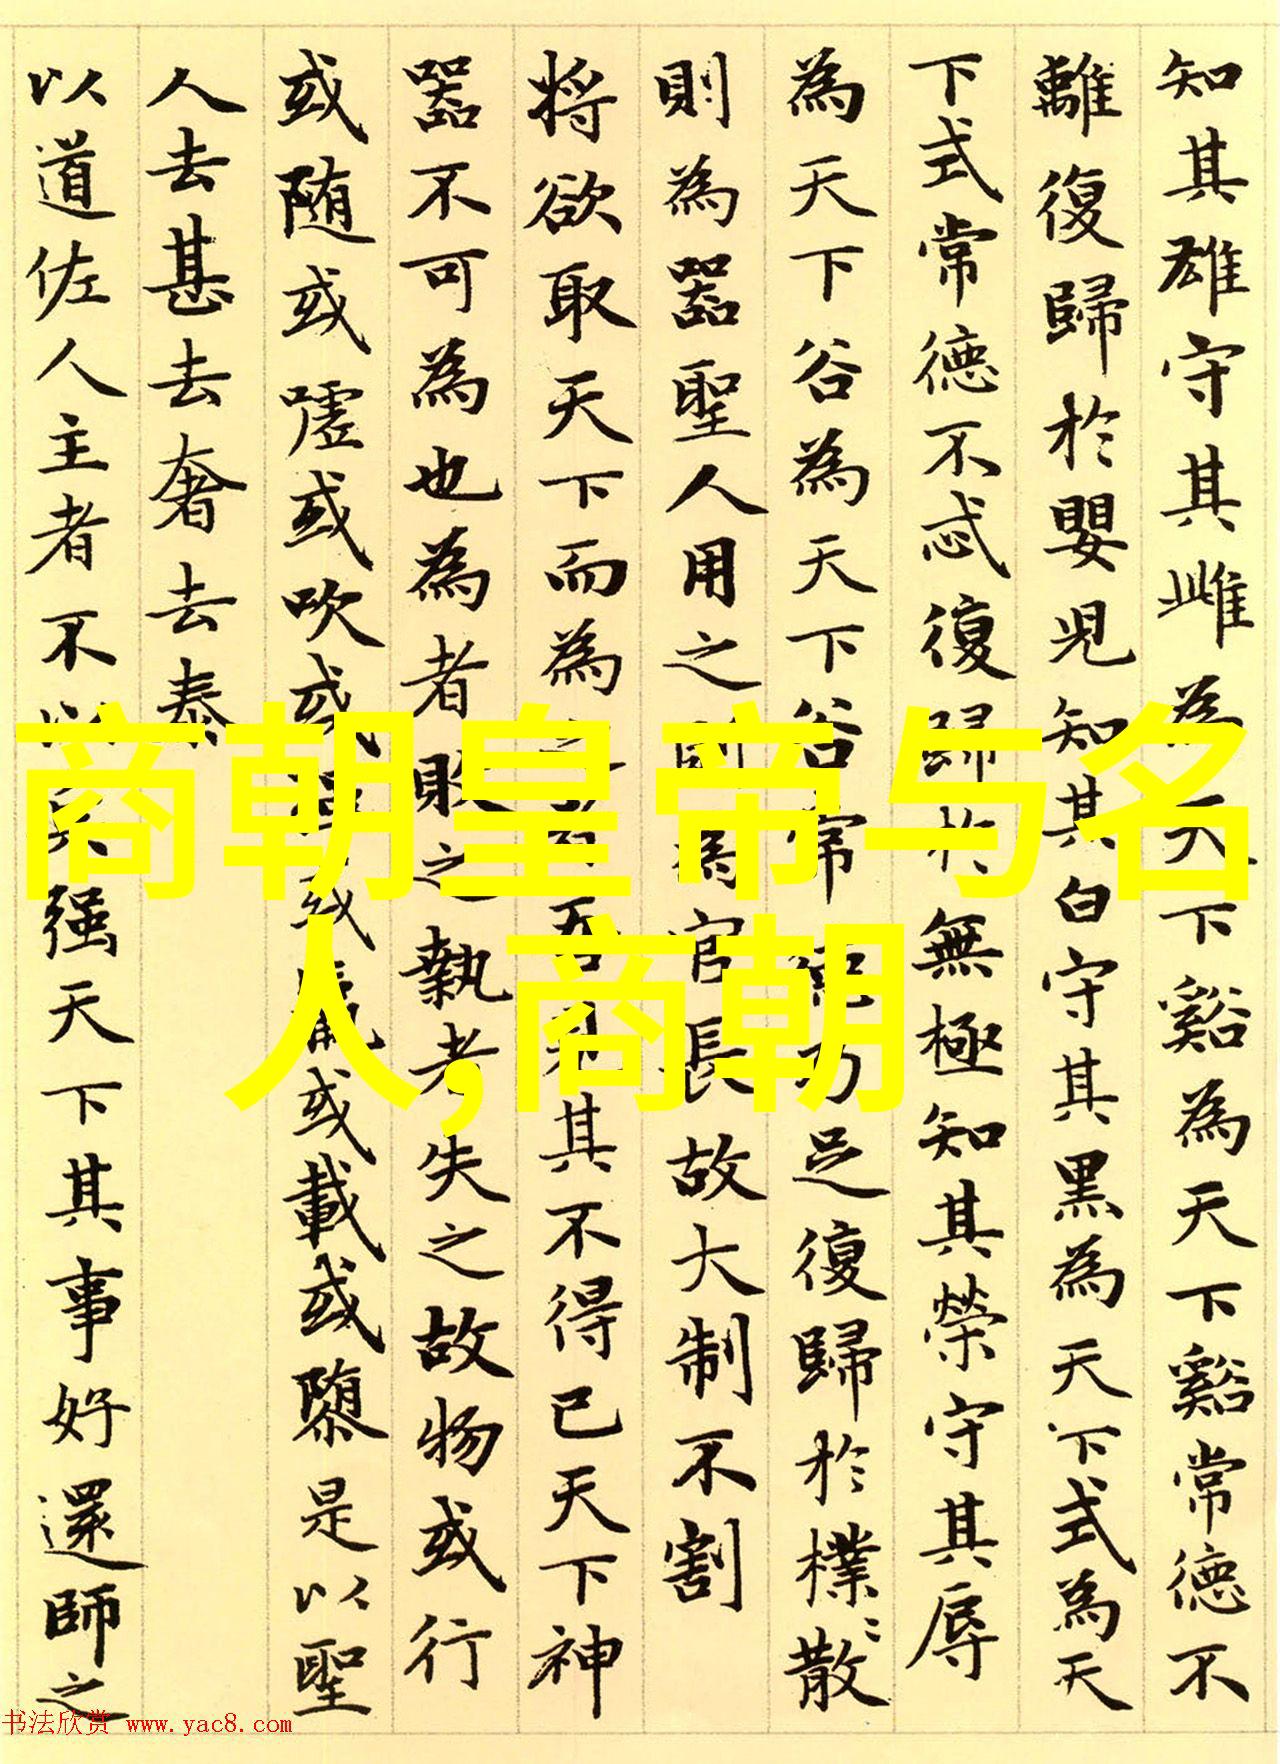 知其雄守其雌為天下谿為天下谿常德不
離復歸於嬰兒知其白守其黑為天下式為天
下式常德不忒復歸於無極知其榮守其辱
為天下谷為天下谷常德乃足復歸於樸〻散
則為器聖人用之則為官長故大制不割
将欲取天下而為之者吾見其不得已天下神
器不可為也為者敗之執者失之故物或行
或随或噓或吹或强或羸或載或隳是以聖
人去甚去奢去泰
以道佐人主者不以兵强天下其事好還師之
商朝皇帝与名
人,商朝
书法欣赏 www.yac8.com